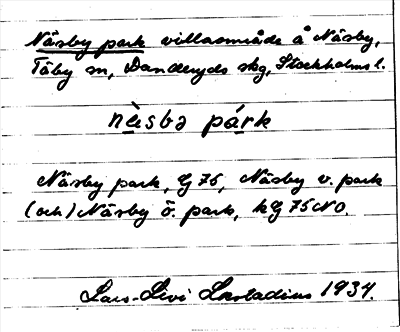 Näsby park villaområde å Näsby,
Täby sn, Danderyds skg, Stockholms l.
nä̀sbə párk
Näsby park, G 75, Näsby v. park
(och) Näsby ö. park, kG 75 NO.
Lars-Levi Læstadius 1934.